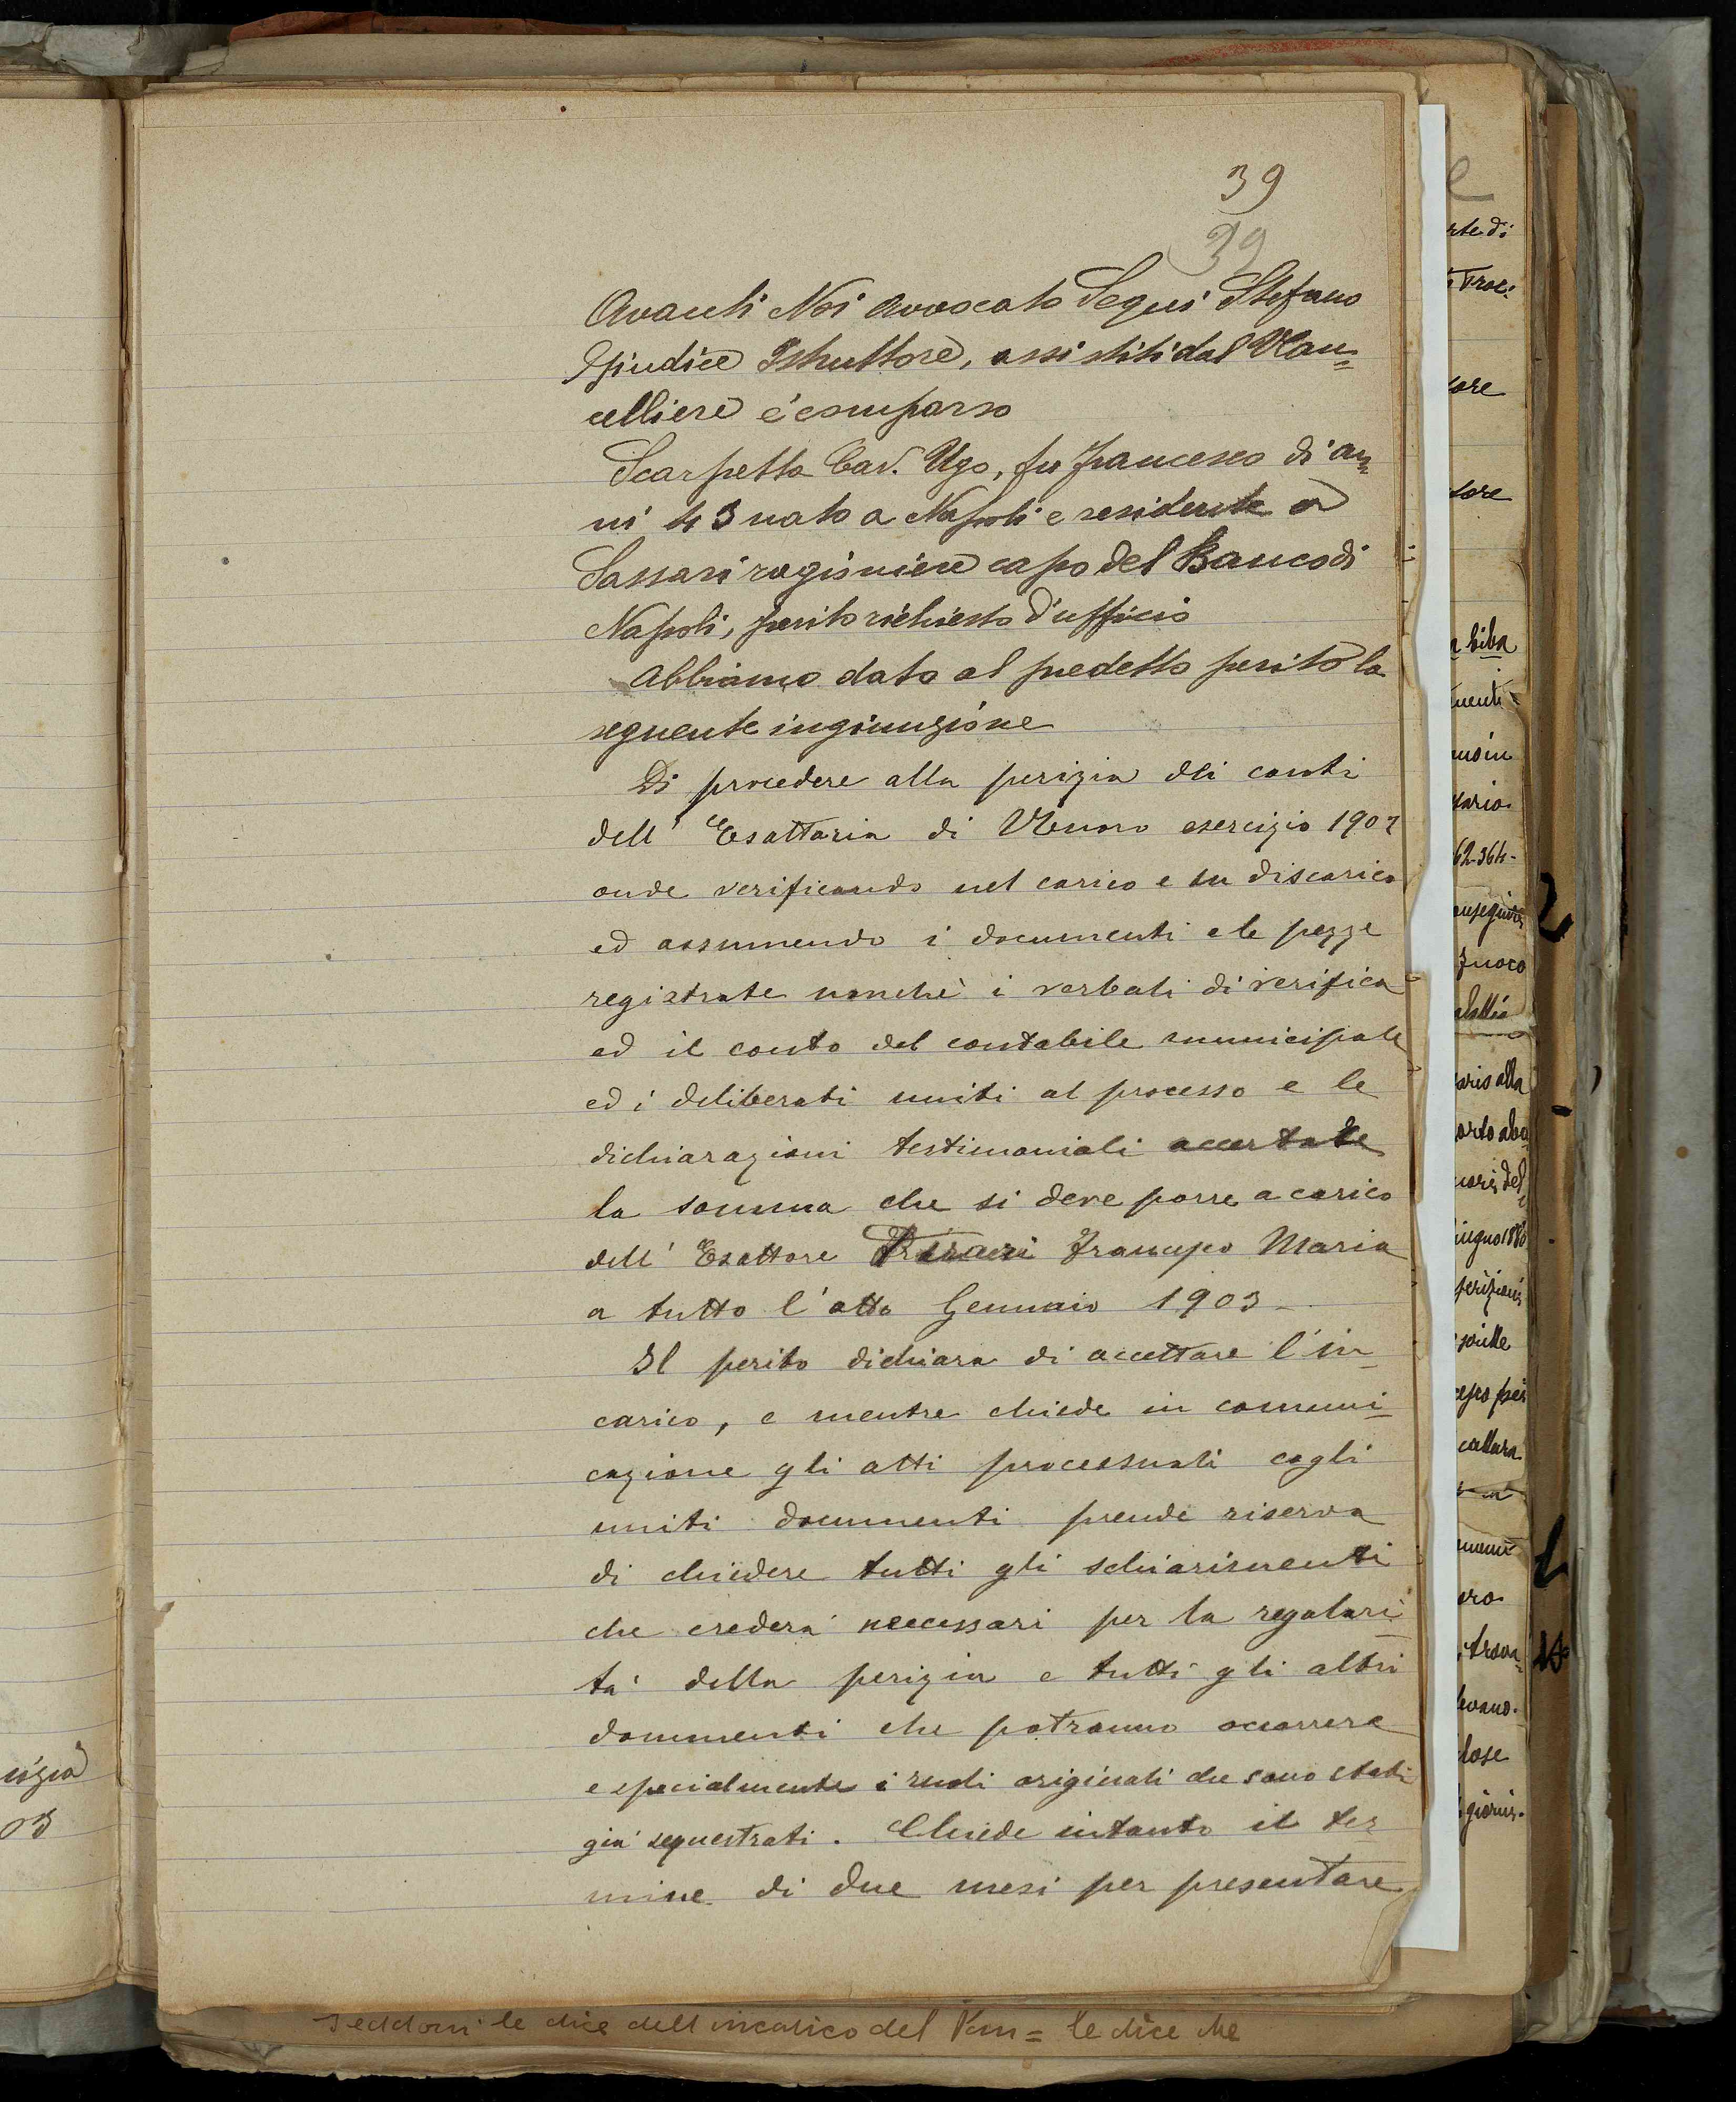 39
39
Avanti Noi Avvocato Sequi Stefano
Giudice Istruttore, assistiti dal Can=
celliere è comparso
Scarpetta Cav. Ugo, fu Francesco di an=
ni 43 nato a Napoli e residente a
Sassari ragioniere capo del Banco di
Napoli, perito richiesto d'ufficio
Abbiamo dato al predetto perito la
seguente ingiunzione
Di procedere alla perizia dei conti
dell' Esattoria di Nuoro esercizio 1902
onde verificando nel carico e su discarico
ed assumendo i documenti e le pezze
registrate nonchè i verbali di verifica
ed il conto del contabile municipale
ed i deliberati uniti al processo e le
dichiarazioni testimoniali accertate
la somma che si deve porre a carico
dell' Esattore Francesco Maria
a tutto l'otto Gennaio 1903 -
Il perito dichiara di accettare l'in-
carico, e mentre chiede in comuni-
cazione gli atti processuali cogli
uniti documenti prende riserva
di chiedere tutti gli schiarimenti
che crederà necessari per la regolari-
tà della perizia e tutti gli altri
documenti che potranno occorrere
e specialmente i ruoli originali che sono stati
già sequestrati. Chiede intanto il ter
mine di due mesi per presentare
le dice dell'incarico del = le dice che
rte di
tore
tore
uenti
tario
62-364-
Fuoco
ario alla
iugno 1880
mille
lose
giorni.
03